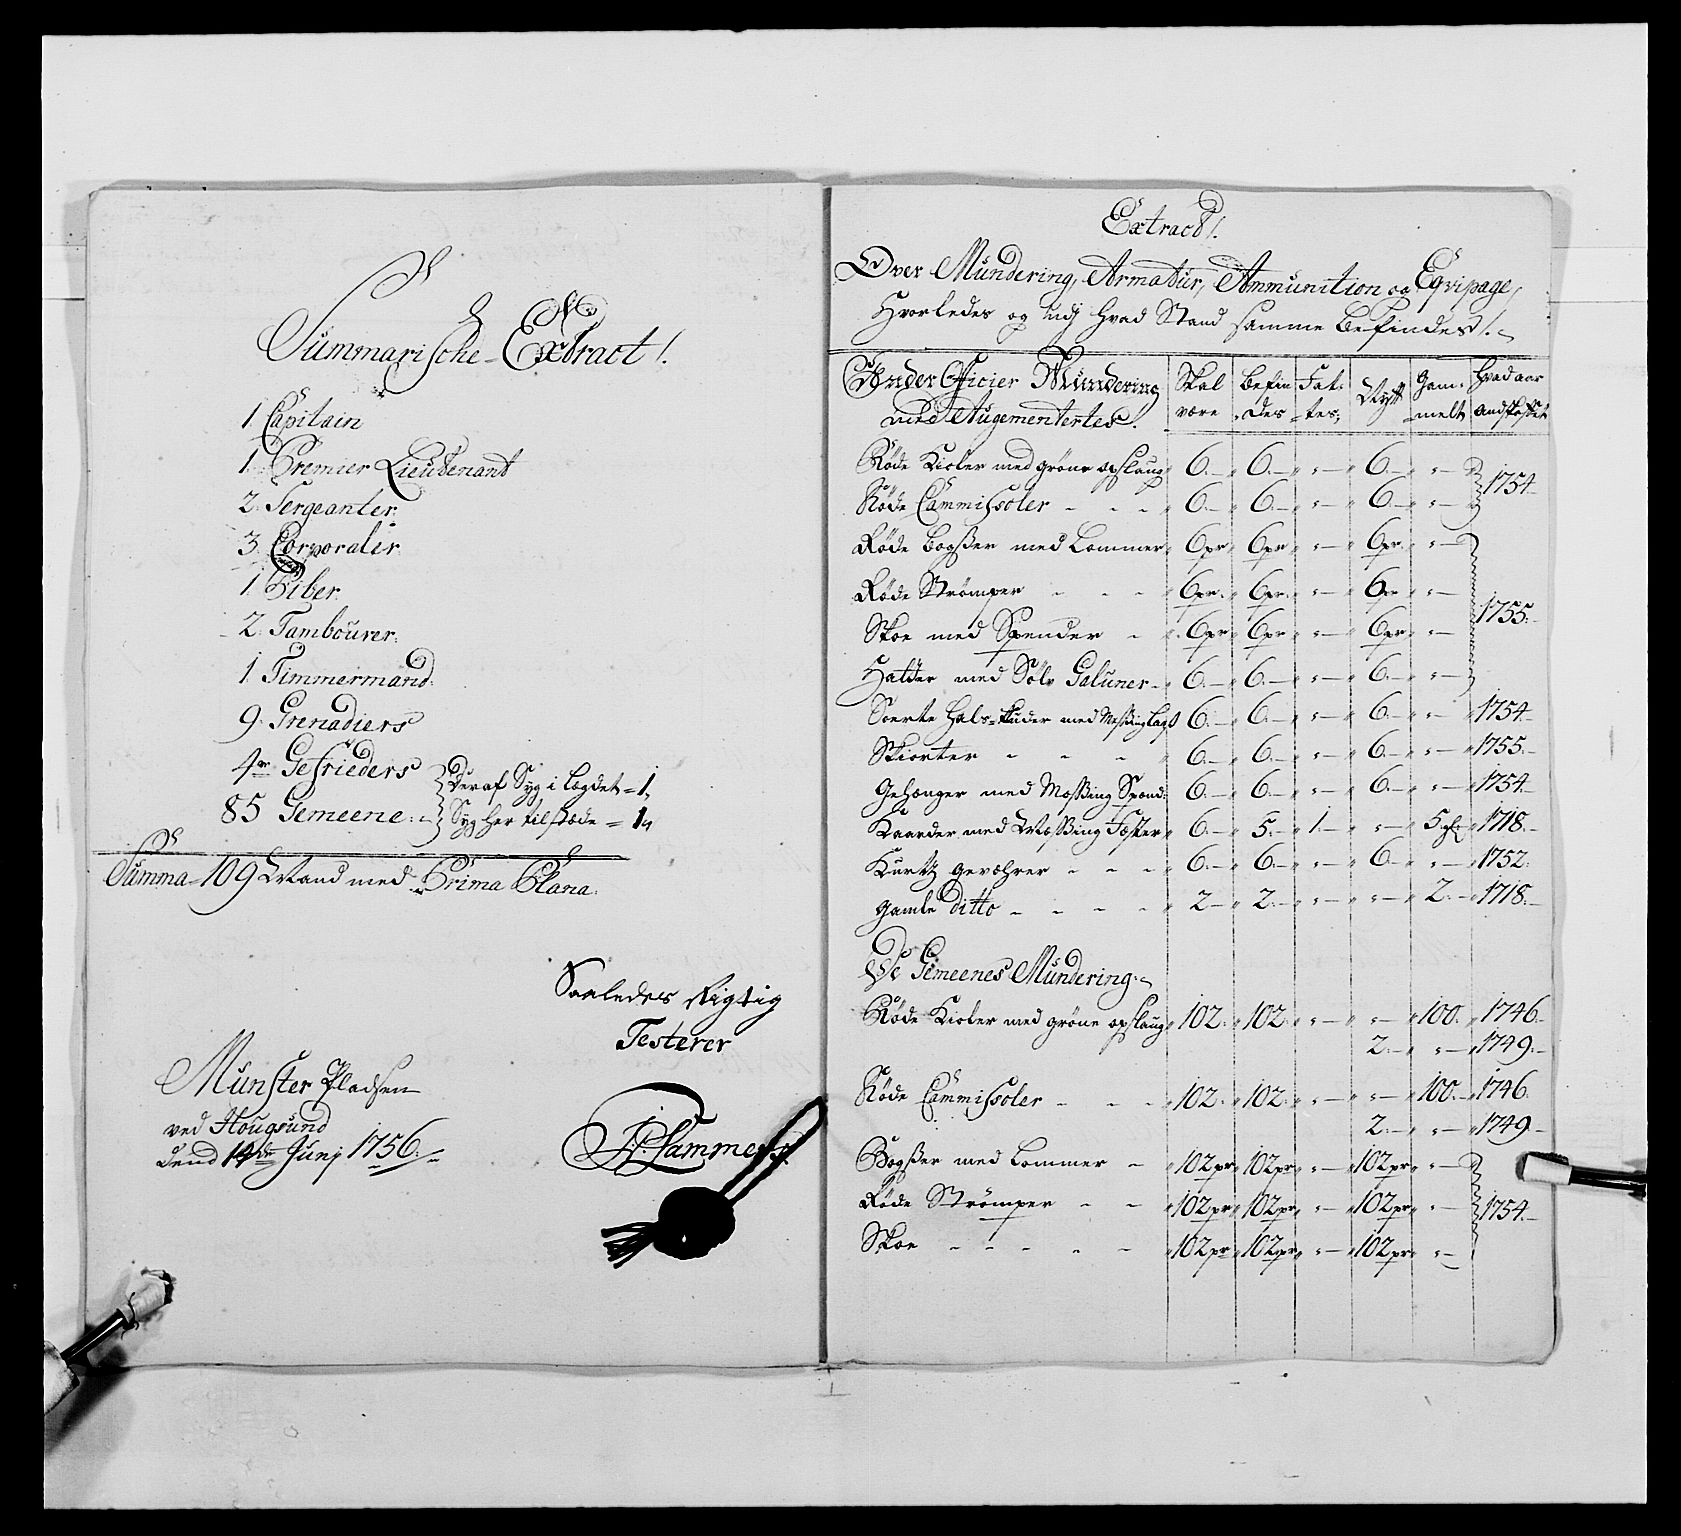 Summarische Extract /.
1. Capitain
1. Premier Lieutenant
2. Sergeanter.
3. Corporaler.
1. Piber.
2. Tambourer.
1. Timmermand.
9. Grenadiers
4r Gefrieders
85 Gemeene.
Deraf Syg i Lægdet = 1,
Syg her tilstæde = 1,,
Summa = 109 Mand med Prima Plana.
Saaledes Rigtig
Testerer
Munster Pladsen
ved Hougsund
dend Junj 1756.
Extract /.
Over Mundering, Armatur, Ammunition og Eqvipage,
Hvorledes og udj hvad Stand samme befindes /.
Under Officier Mundering med Augementertes. | Skal være | Befin des | Fat: tes, | Nytt | Gam: melt | Hvad aar andskaffet
Røde Kioler med grøne opslaug 6. 6. " 6. " 1754
Røde Cammissoler - - - 6. 6. " 6. "
Røde Bogsßer med Lommer 6pr 6pr " 6pr "
Røde Strømper - - - 6pr. 6pr. " 6pr "
Skoe med Spender - 6pr 6pr " 6pr " 1755.
Hatter med Sølv Galuner 6. 6. " 6. "
Soerte Hals-kluder med Messinglaas 6. 6. " 6. " 1754.
Skiorter - - - 6. 6. " 6. " 1755.
Gehænger med Mæsßing Spend: 6. 6. " 6. " 1754.
Kaarder med Mæsßing Fæster 6. 5. 1. " 5 gl. 1718.
Kurtz Gevæhrer - - - 6. 6. " 6. " 1752.
Gamle ditto - - - - 2 2. " " 2. 1718.
De Gemeenes Mundering.
Røde Kioler med grøne opslaug 102. 102. " " 100. 1746.
2. " 1749.
Røde Cammissoler - - - 102. 102. " " 100. 1746.
2. " 1749.
Bogsßer med Lommer - 102pr 102pr " 102pr "
Røde Strømper - - 102pr 102pr " 102pr " 1754.
Skoe - - - - - 102pr 102pr. " 102pr "